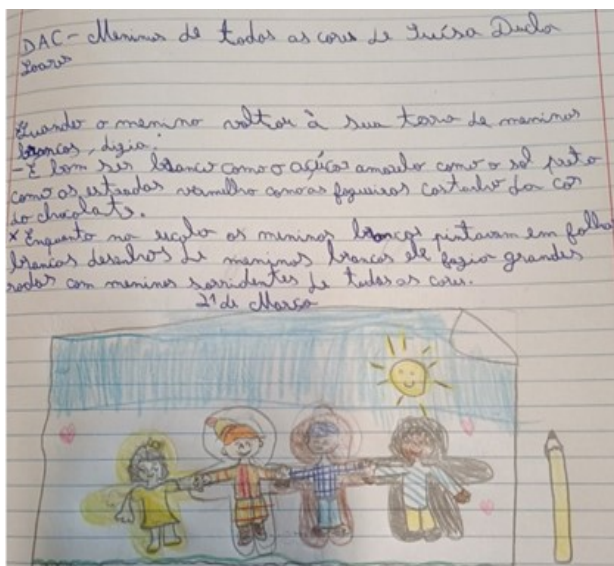 DAC - Meninos de todas as cores de Luísa Ducla
Soares
Quando o menino voltou à sua terra de meninos
brancos, dizia:
- É bom ser branco como o açúcar amarelo como o sol preto
como as estradas vermelho como as fogueiras castanho da cor
do chocolate.
* Enquanto na escola os meninos brancos pintavam em folhas
brancas desenhos de meninos brancos ele fazia grandes
rodas com meninos sorridentes de todas as cores.
21 de Março